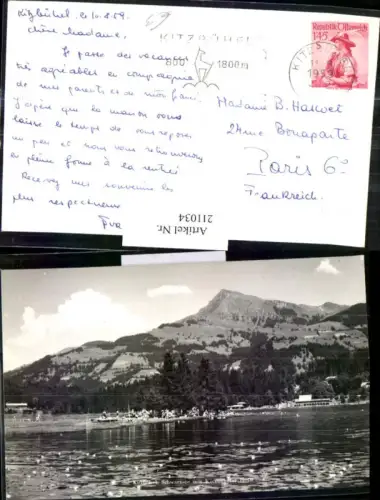 Kitzbühel le 10.8.59.
Chère Madame,
Je passe des vacances
très agréables en compagnie
de mes parents et de mon fiancé
J'espère que la maison vous
laisse le temps de vous reposer
un peu et nous vous retrouverons
en pleine forme à la rentrée
Recevez mes souvenirs les
plus respectueux
Eva
KITZBÜHEL
800
1800m
KITZ
1959
Republik Österreich
1.45 S
Madame B. Hasvet
24 rue Bonaparte
Paris 6e
Frankreich.
Artikel Nr.
211034
Schwarzsee